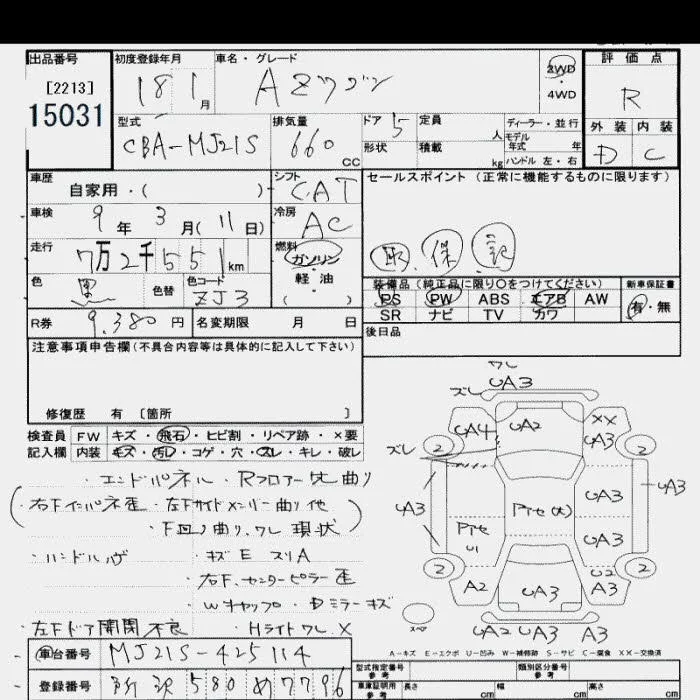 出品番号
[2213]
15031
初度登録年月
18 1月
車名・グレード
AZワゴン
2WD
・
4WD
評価点
R
外装 内装
D C
型式
CBA-MJ21S
排気量
660 CC
ドア 5
形状
定員 人
積載 kg
ディーラー・並行
モデル
年式 年
ハンドル 左・右
車歴
自家用・( )
シフト
CAT
車検
9年 3月(11日)
冷房
AC
走行
7万2千551km
燃料
ガソリン
・
軽油
( )
色
黒
色替
色コード
ZJ3
R券
9,380円
名変期限 月 日
セールスポイント (正常に機能するものに限ります)
取 保 記
装備品(純正品に限り○をつけてください)
PS PW ABS エアB AW
SR ナビ TV カワ
新車保証書
有・無
後日品
注意事項申告欄(不具合内容等は具体的に記入して下さい)
修復歴 有 [箇所 ]
検査員
記入欄
FW キズ・飛石・ヒビ割・リペア跡・×要
内装 キズ・汚レ・コゲ・穴・スレ・キレ・破レ
・エンドパネル・Rフロアー先曲り
(右Fインパネ歪・左Fサイドメンバー曲り他
・F廻り曲り、ワレ 現状)
・ハンドルハゲ ・キズE スリA
・右F、センターピラー歪
・Wキャップ・Dミラーキズ
・左Fドア開閉不良 ・Hライトワレ、X
ワレ
ズレ UA3
UA4 UA2 XX
UA3
ズレ
2 2
UA3 UA3 UA3
Pイセ
U1
Pイセ(大)
UA3
2 2
U2
A2 UA3 A3
スペア
UA2 UA3 A3
A-キズ E-エクボ U-凹み W-補修跡 S-サビ C-腐食 XX-交換済
車台番号
MJ21S-425114
登録番号
所沢 580 め 7796
型式指定番号
参考
類別区分番号
参考
車庫証明用
参考
長さ cm
幅 cm
高さ cm